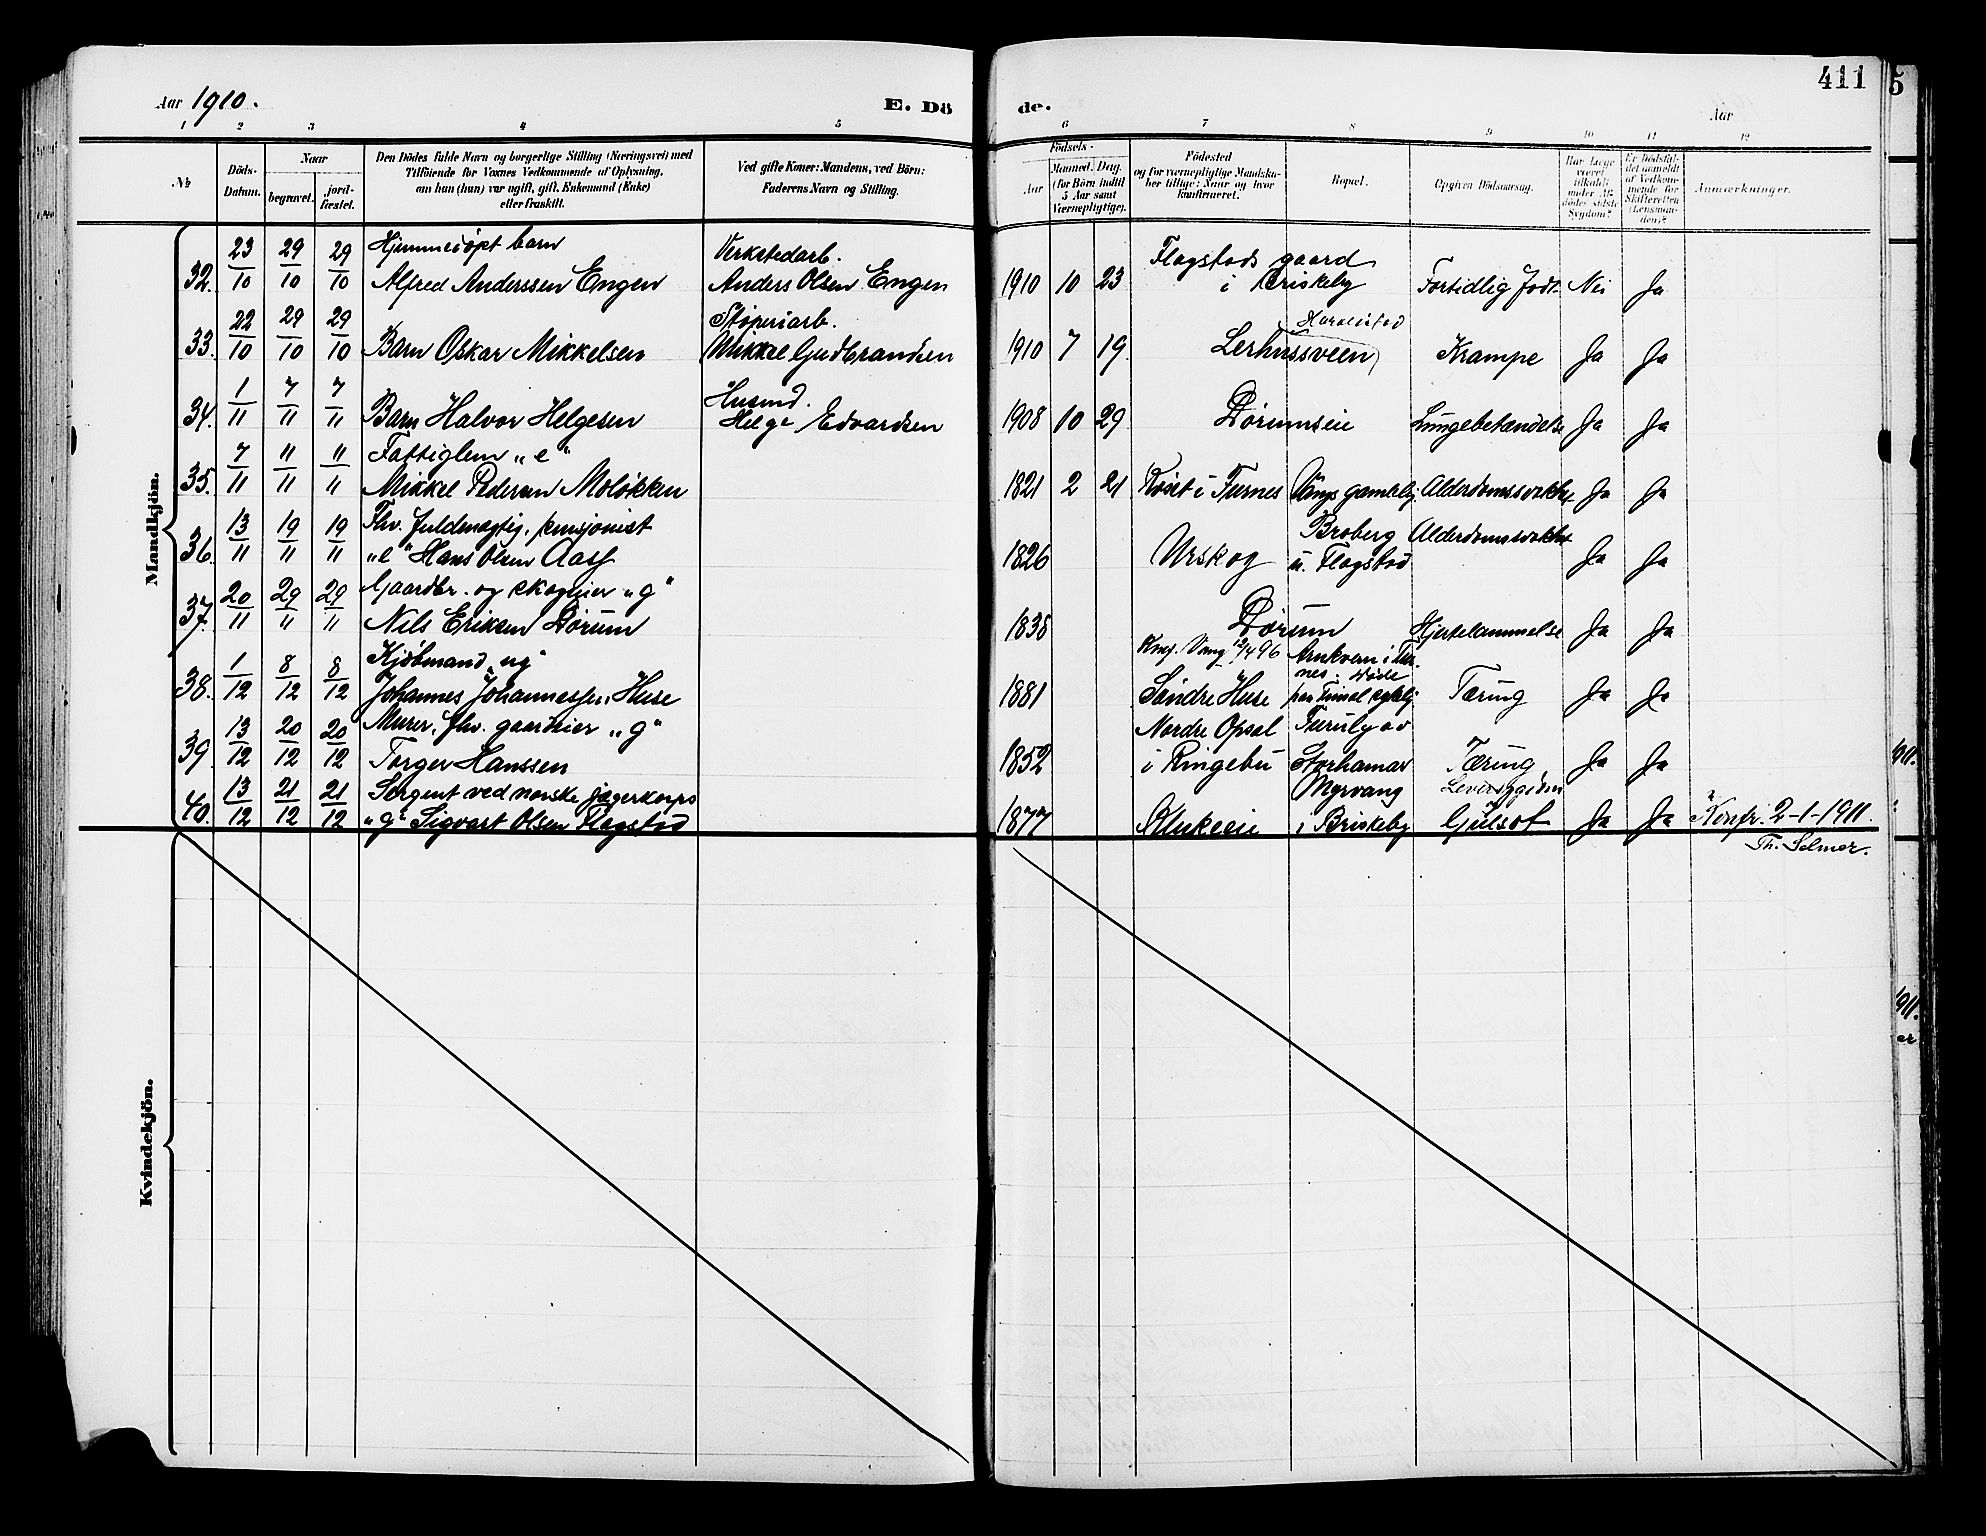 Aar 1910.
E. Dö
de.
411
Aar
1 2 3 4 5 6 7 8 9 10 11 12
No.
Döds-Datum.
Naar
begravet.
jord-fæstet.
Den Dödes fulde Navn og borgerlige Stilling (Næringsvei) med
Tilföiende för Voxnes Vedkommende af Oplysning,
om han (hun) var ugift, gift, Enkemand (Enke)
eller fraskilt.
Ved gifte Koner: Mandens, ved Börn:
Faderens Navn og Stilling.
Födsels-
Aar
Maaned. Dag.
(for Börn indtil
5 Aar samt
Værnepligtige).
Födested
og for værnepligtige Mandska-
ber tillige: Naar og hvor
konfirmeret.
Bopæl.
Opgiven Dödsaarsag.
Har Læge
været
tilkaldt
under den
dödes sidste
Sygdom?
Er Dödsfal-
det anmeldt
af Vedkom-
mende for
Skifteretten
(Lensman-
den)?
Anmærkninger.
Mandkjön.
32. 23/10 29/10 29/10 Hjemmedöpt barn
Alfred Anderssen Engen
Verkstedarb.
Anders Olsen Engen
1910 10 23 Flagstads gaard
i Briskeby
Fortidlig födt. Nei Ja
33. 22/10 29/10 29/10 Barn Oskar Mikkelsen
Støperiarb.
Mikkel Gudbrandsen
1910 7 19 Lerhussveen
Krampe Ja Ja
34. 1/11 7/11 7/11 Barn Halvor Helgesen
Husmd.
Helge Edvardsen
1908 10 29 Dørumseie
Lungebetændelse Ja Ja
35. 7/11 11/11 11/11 Fattiglem „e"
Mikkel Pedersen Moløkken
1821 2 21 i Furnes Vangs gamlehj. Alderdomssvakhet Ja Ja
36. 13/11 19/11 19/11 Fhv. fuldmægtig, pensjonist
„e" Hans Olsen Aas
1826 Urskog Broberg
u. Flagstad Alderdomssvakhet Ja Ja
37. 20/11 29/11 29/11 Gaardbr. og skogeier „g"
Nils Eriksen Dørum
1838 Dørum
Hjertelammelse Ja Ja
38. 1/12 8/12 8/12 Kjøbmand „ug"
Johannes Johannessen Huse
1881 Konf. Vang 12/4 96
Søndre Huse
Arnkvern i Fur-
nes; døde
paa sykehj.
Tæring Ja Ja
39. 13/12 20/12 20/12 Murer, fhv. gaardeier „g"
Torger Hanssen
1852 Nordre Opsal
i Ringebu
Furuly av
Storhamar
Tæring Ja Ja
40. 13/12 21/12 21/12 Sergent ved norske jægerkorps
„g" Sigvart Olsen Flagstad
1877 Myrvang
i Briskeby
Gulsot Ja Ja Konfr. 2-1-1911.
Th. Selmer.
Kvindekjön.